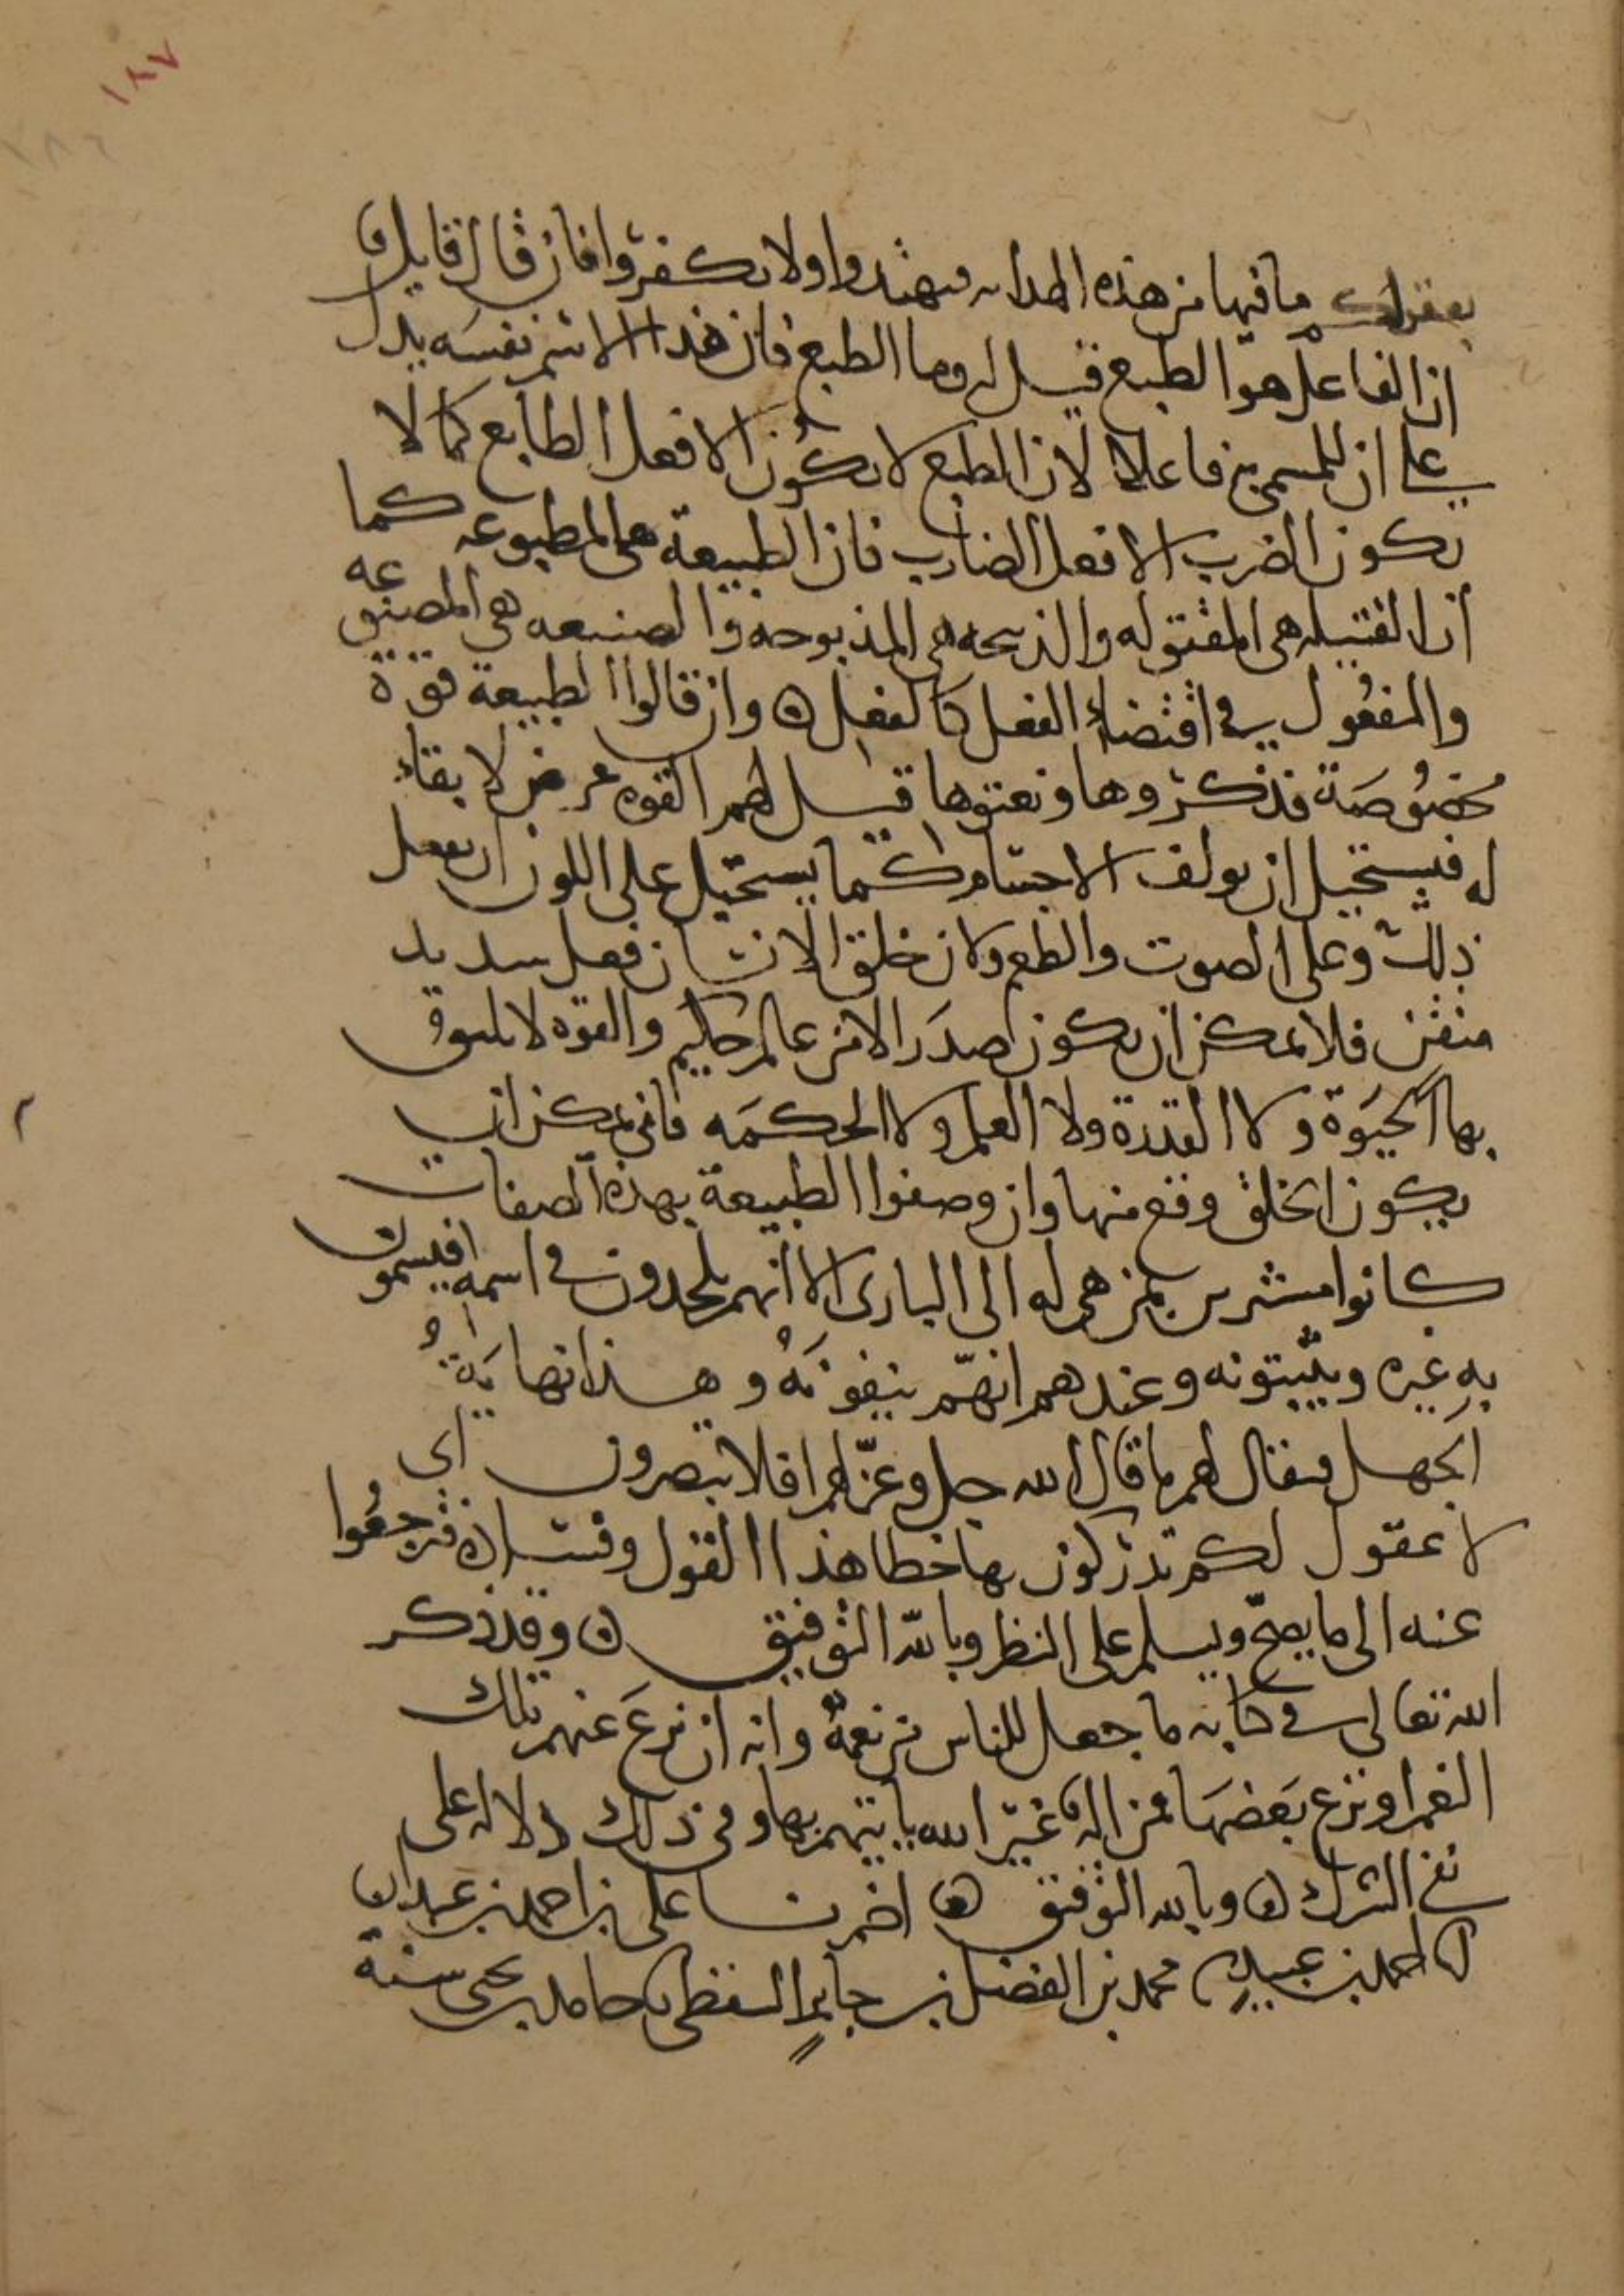 ١٨٧
بعقولكم ما فيها من هذه الهداية فتهتدوا ولا تكفروا فان قال قايل
ان الفاعل هو الطبع قيل له وما الطبع فان هذا الاسم نفسه يدل
على ان للمسمى به فاعلا لان الطبع لا يكون الا فعل الطابع كما لا
يكون الضرب الا فعل الضارب فان الطبيعة هي المطبوعه كما
ان القتيله هي المقتوله والذبيحه هي المذبوحه والصنيعه هي المصنوعه
والمفعول في اقتضاء الفعل كالفعل ٥ وان قالوا الطبيعة قوة
مخصوصة فذكروها ونعتوها قيل لهم القوه عرض لا بقاء
له فيستحيل ان يولف الاجسام كما يستحيل على اللون ان يفعل
ذلك وعلى الصوت والطعم ولان خلق الانسان فعل سديد
متقن فلا يمكن ان يكون صدر الا من عالم حكيم والقوه لا يليق
بها الحيوة ولا القدرة ولا العلم ولا الحكمه فانى يمكن ان
يكون الخلق وقع منها وان وصفوا الطبيعة بهذه الصفات
كانوا مشيرين بمن هي له الى البارى الا انهم يلحدون في اسمه فيسمون
به غيره ويثبتونه وعندهم انهم ينفونه وهذا نهاية
الجهل فيقال لهم ما قال الله جل وعز لهم افلا تبصرون اى
لا عقول لكم تدركون بها خطا هذا القول وفساده فترجعوا
عنه الى ما يصح ويسلم على النظر وبالله التوفيق ٥ وقد ذكر
الله تعالى في كتابه ما جعل للناس من نعمه وانه ان نزع عنهم تلك
النعم او نزع بعضها فمن اله غير الله ياتيهم بها وفي ذلك دلاله على
نفي الشرك ٥ وبالله التوفيق ٥ اخبرنا على بن احمد بن عبدان
انا احمد بن عبيد نا محمد بن الفضل بن جابر السقطى نا حامد بن يحيى سنة